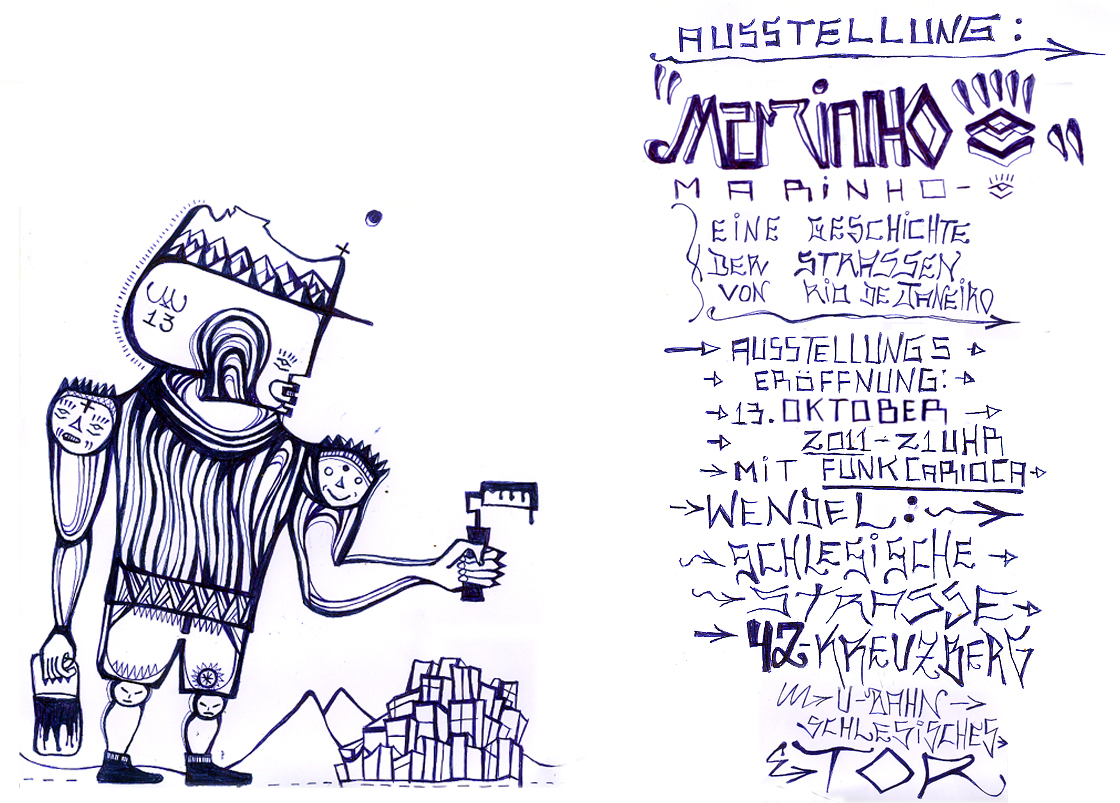 AUSSTELLUNG:
"MARINHO"
MARINHO-
EINE GESCHICHTE
DER STRASSEN
VON RIO DE JANEIRO
AUSSTELLUNGS
ERÖFFNUNG:
13. OKTOBER
2011-21UHR
MIT FUNKCARIOCA
WENDEL:
SCHLESISCHE
STRASSE
42-KREUZBERG
U-BAHN
SCHLESISCHES
TOR
13